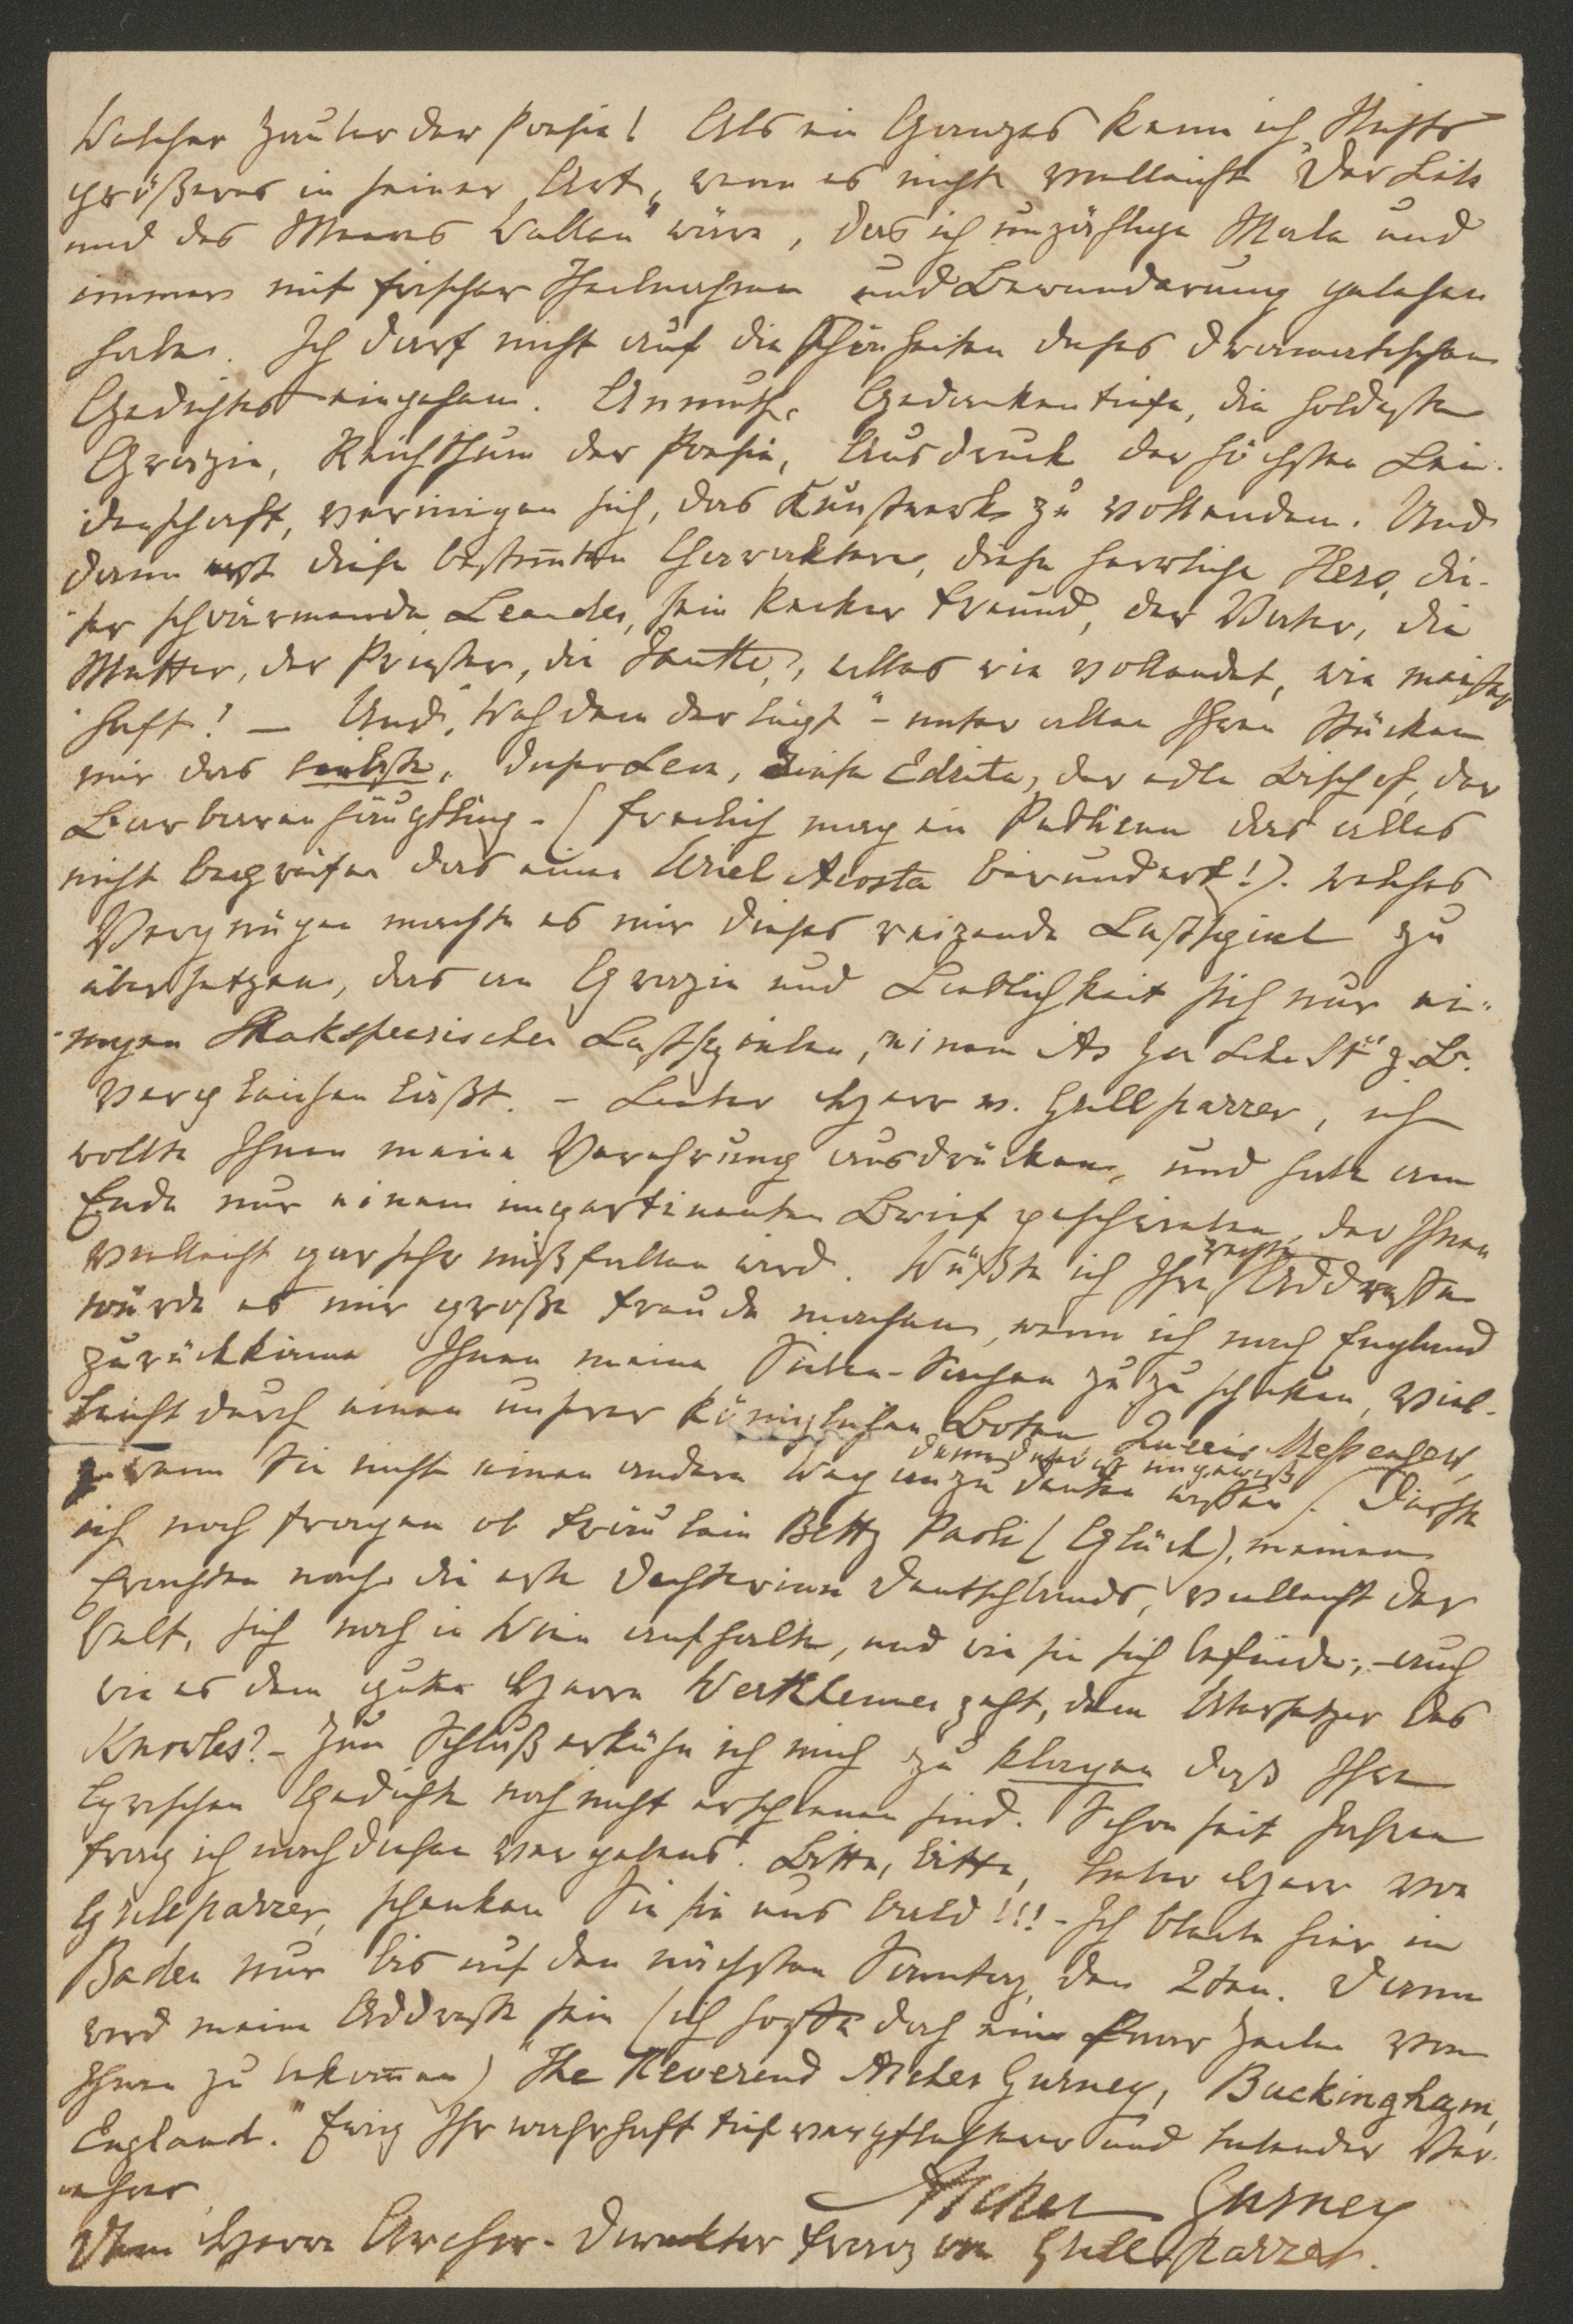 Welcher Zauber der Poesie! Als ein Ganzes kenn ich Nichts
größeres in seiner Art, wenn es nicht vielleicht "Der Liebe
und des Meeres Wellen" wäre, das ich unzählige Male und
immer mit frischer Theilnahme und Bewunderung gelesen
habe. Ich darf nicht auf die Schönheiten dieses dramatischen
Gedichtes eingehen. Anmuth, Gedankentiefe, die holdeste
Grazie, Reichthum der Poesie, Ausdruck der höchsten Lei-
denschaft, vereinigen sich, das Kunstwerk zu vollenden. Und
dann erst diese bestim̅ten Charaktere, diese herrliche Hero, die-
ser schwärmende Leander, sein kecker Freund, der Vater, die
Mutter, der Priester, die Janthe, alles wie vollendet, wie meister-
haft! – Und "Weh dem der lügt" – unter allen Ihren Stücken
mir das liebste. Dieser Leon, diese Edrita, der edle Bischof, der
Barbarenhäuptling – (freilich mag ein Publicum das alles
nicht begreifen das einen Uriel Acosta bewundert!). Welches
Vergnügen machte es mir dieses reizende Lustspiel zu
übersetzen, das an Grazie und Lieblichkeit sich nur ei-
nigen Shakspearischen Lustspielen, einem "As you like it" z. B.
vergleichen läßt. – Lieber Herr v. Grillparzer, ich
wollte Ihnen meine Verehrung ausdrücken, und habe am
Ende nur einen impertinenten Brief geschrieben, der Ihnen
vielleicht gar sehr mißfallen wird. Wüßte ich Ihre rechte Addresse
würde es mir große Freude machen, wenn ich nach England
zurückkäme Ihnen meine Sieben-Sachen zuzuschicken, viel-
leicht durch einen unserer königlichen Boten Queens Messengers,
wenn Sie nicht einen andern Weg anzudeuten wißen (denn dieser ist ungewiß). Dürfte
ich noch fragen ob Fräulein Betty Paoli (Glück), meinem
Erachten nach die erste Dichterinn Deutschlands, vielleicht der
Welt, sich noch in Wien aufhalte, und wie sie sich befinde; – auch
wie es dem guten Herrn Werkheimer geht, dem Übersetzer des
Knowles? – Zum Schluß erkühn ich mich zu klagen daß Ihre
lyrischen Gedichte noch nicht erschienen sind. Schon seit Jahren
frag ich nach diesen vergebens. Bitte, bitte, lieber Herr von
Grillparzer, schenken Sie sie uns bald!!! – Ich bleibe hier in
Baden nur bis auf den nächsten Sonntag, den 2ten. Dann
wird meine Addresse sein (ich hoffe doch ein Paar Zeilen von
Ihnen zu bekom̅en) "The Reverend Archer Gurney, Buckingham,
England." Ewig Ihr wahrhaft tief verpflichteter und liebender Ver-
ehrer,
Archer Gurney
Dem Herrn Archiv-Direktor Franz von Grillparzer.